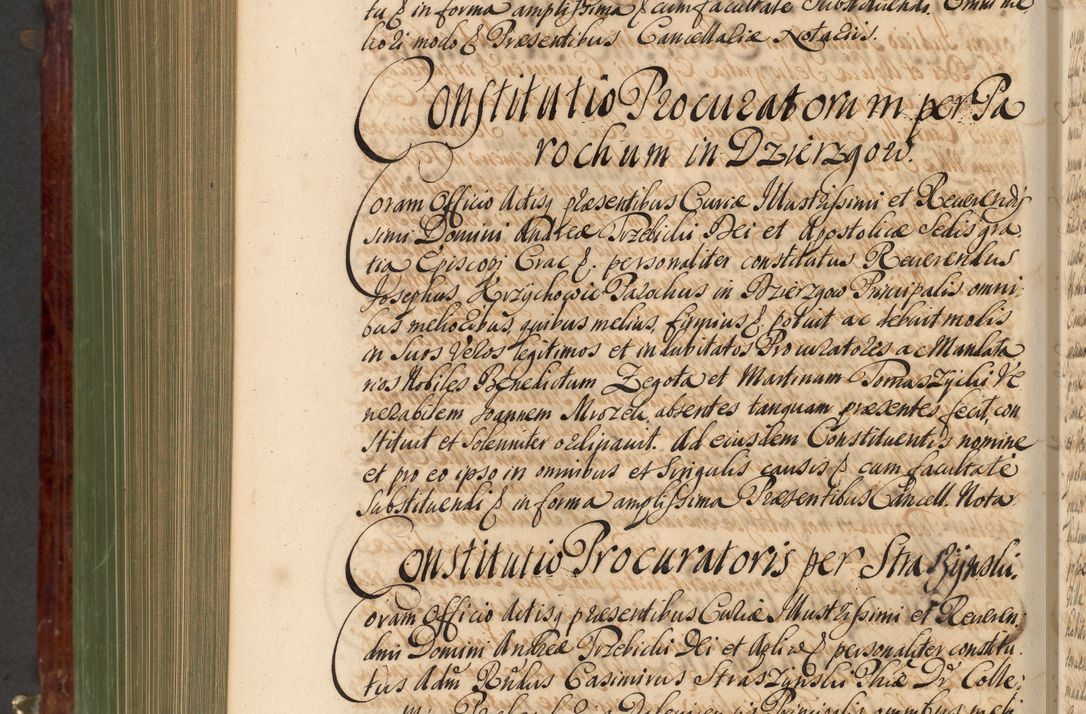 tu & in forma amplissima & cum facultate Substituendi, Omni me
liori modo & Præsentibus Cancellariæ Notariis.
Constitutio Procuratorum per Pa
rochum in Dzierzgow.
Coram Officio Actisq præsentibus Curiæ Illustrissimi et Reuerendis
simi Domini Andreæ Trzebicki Dei et Apostolicæ Sedis gra
tia Episcopi Crac &. personaliter constitutus Reuerendus
Josephus Krzychowic Parochus in Dzierzgow Principalis omni
bus melioribus, quibus melius, firmius & potuit ac debuit modis
in Suos Veros legitimos et indubitatos Procuratores ac Mandata
rios Nobiles Benedictum Zegota et Martinum Tomaszycki Ve
nerabilem Joannem Mrozek, absentes tanquam præsentes fecit, con
stituit et Solenniter ordinauit. Ad eiusdem Constituentis nomine
et pro eo ipso in omnibus et Singulis causis & cum facultate
Substituendi & in forma amplissima Præsentibus Cancell. Nota
Constitutio Procuratoris per Straszynski.
Coram Officio Actisq præsentibus Curiæ Illustrissimi et Reueren
dmi Domini Andreæ Trzebicki Dei et Aplicæ & personaliter constitu
tus Adm Rndus Casimirus Straszynski Phiæ Dr Colle: